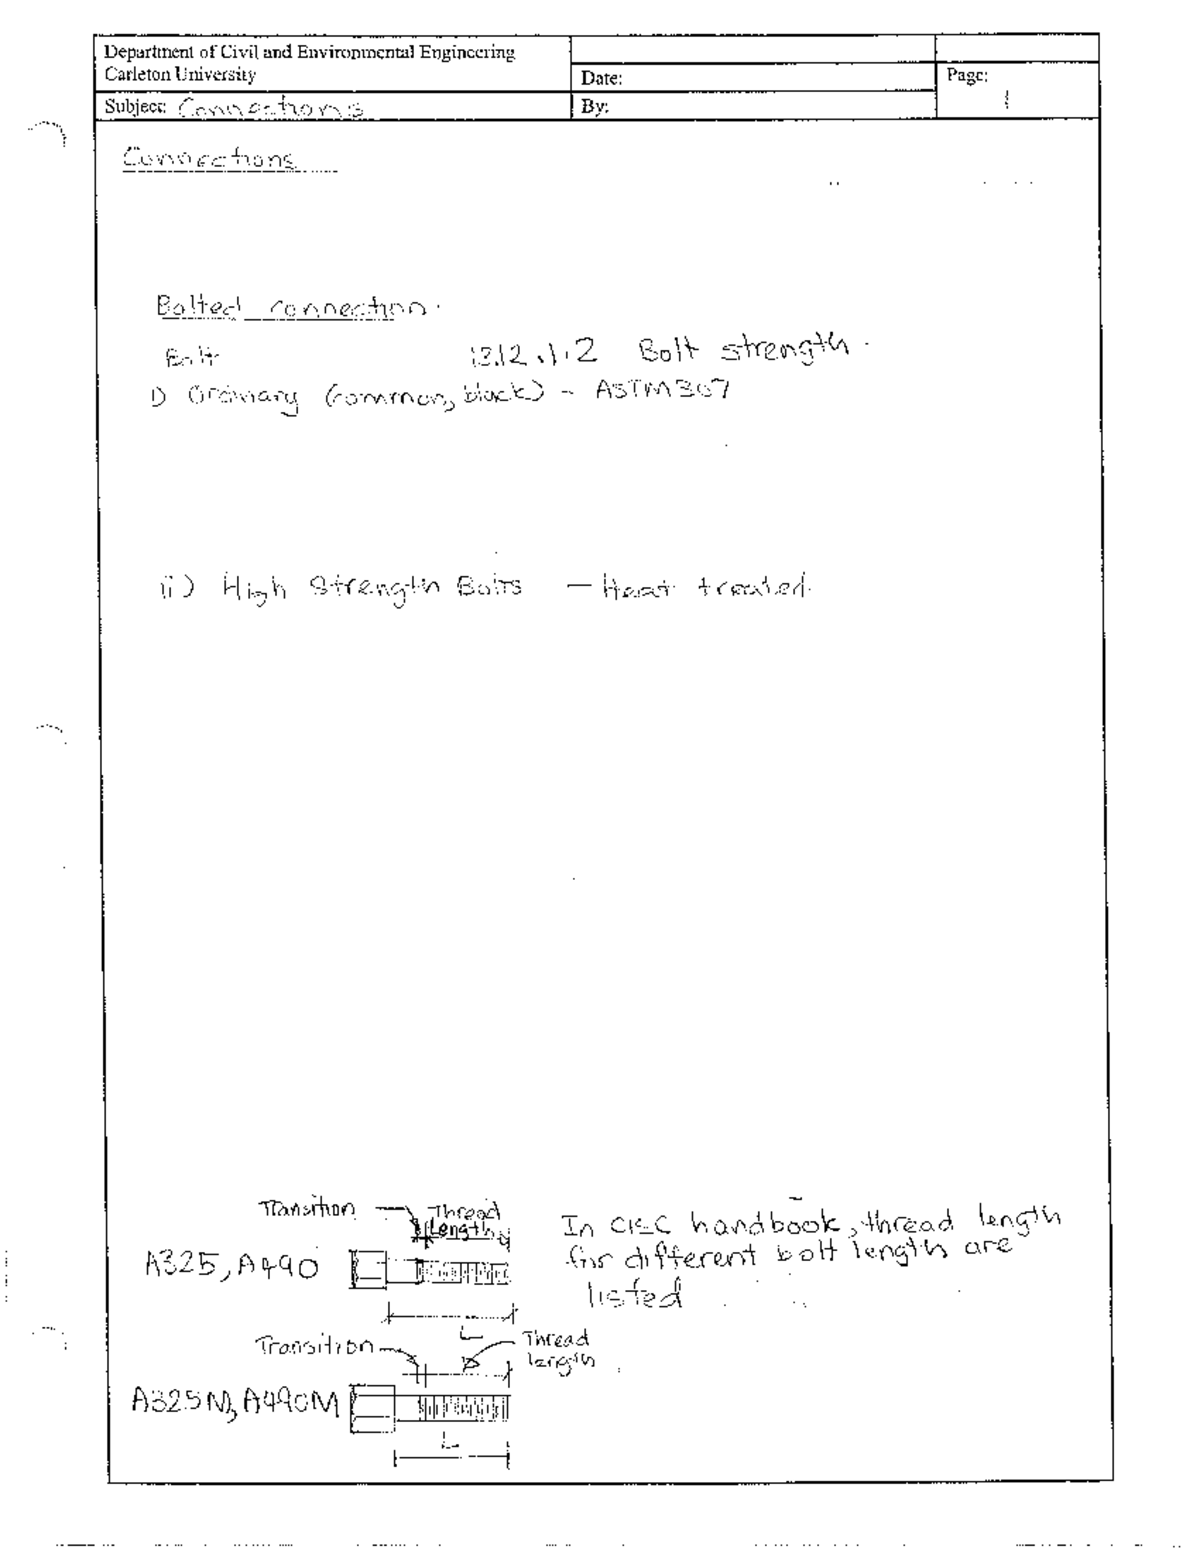 Department of Civil and Environmental Engineering
Carleton University
Date:
Page:
1
Subject: Connections
By:
Connections
Bolted connection.
Bolt 13.12.1.2 Bolt strength.
i) Ordinary (common, black) - ASTM 307
ii) High Strength Bolts - Heat treated.
Transition
Thread
Length
A325, A490
L
In CISC handbook, thread length
for different bolt length are
listed
Transition
Thread
length
A325M, A490M
L